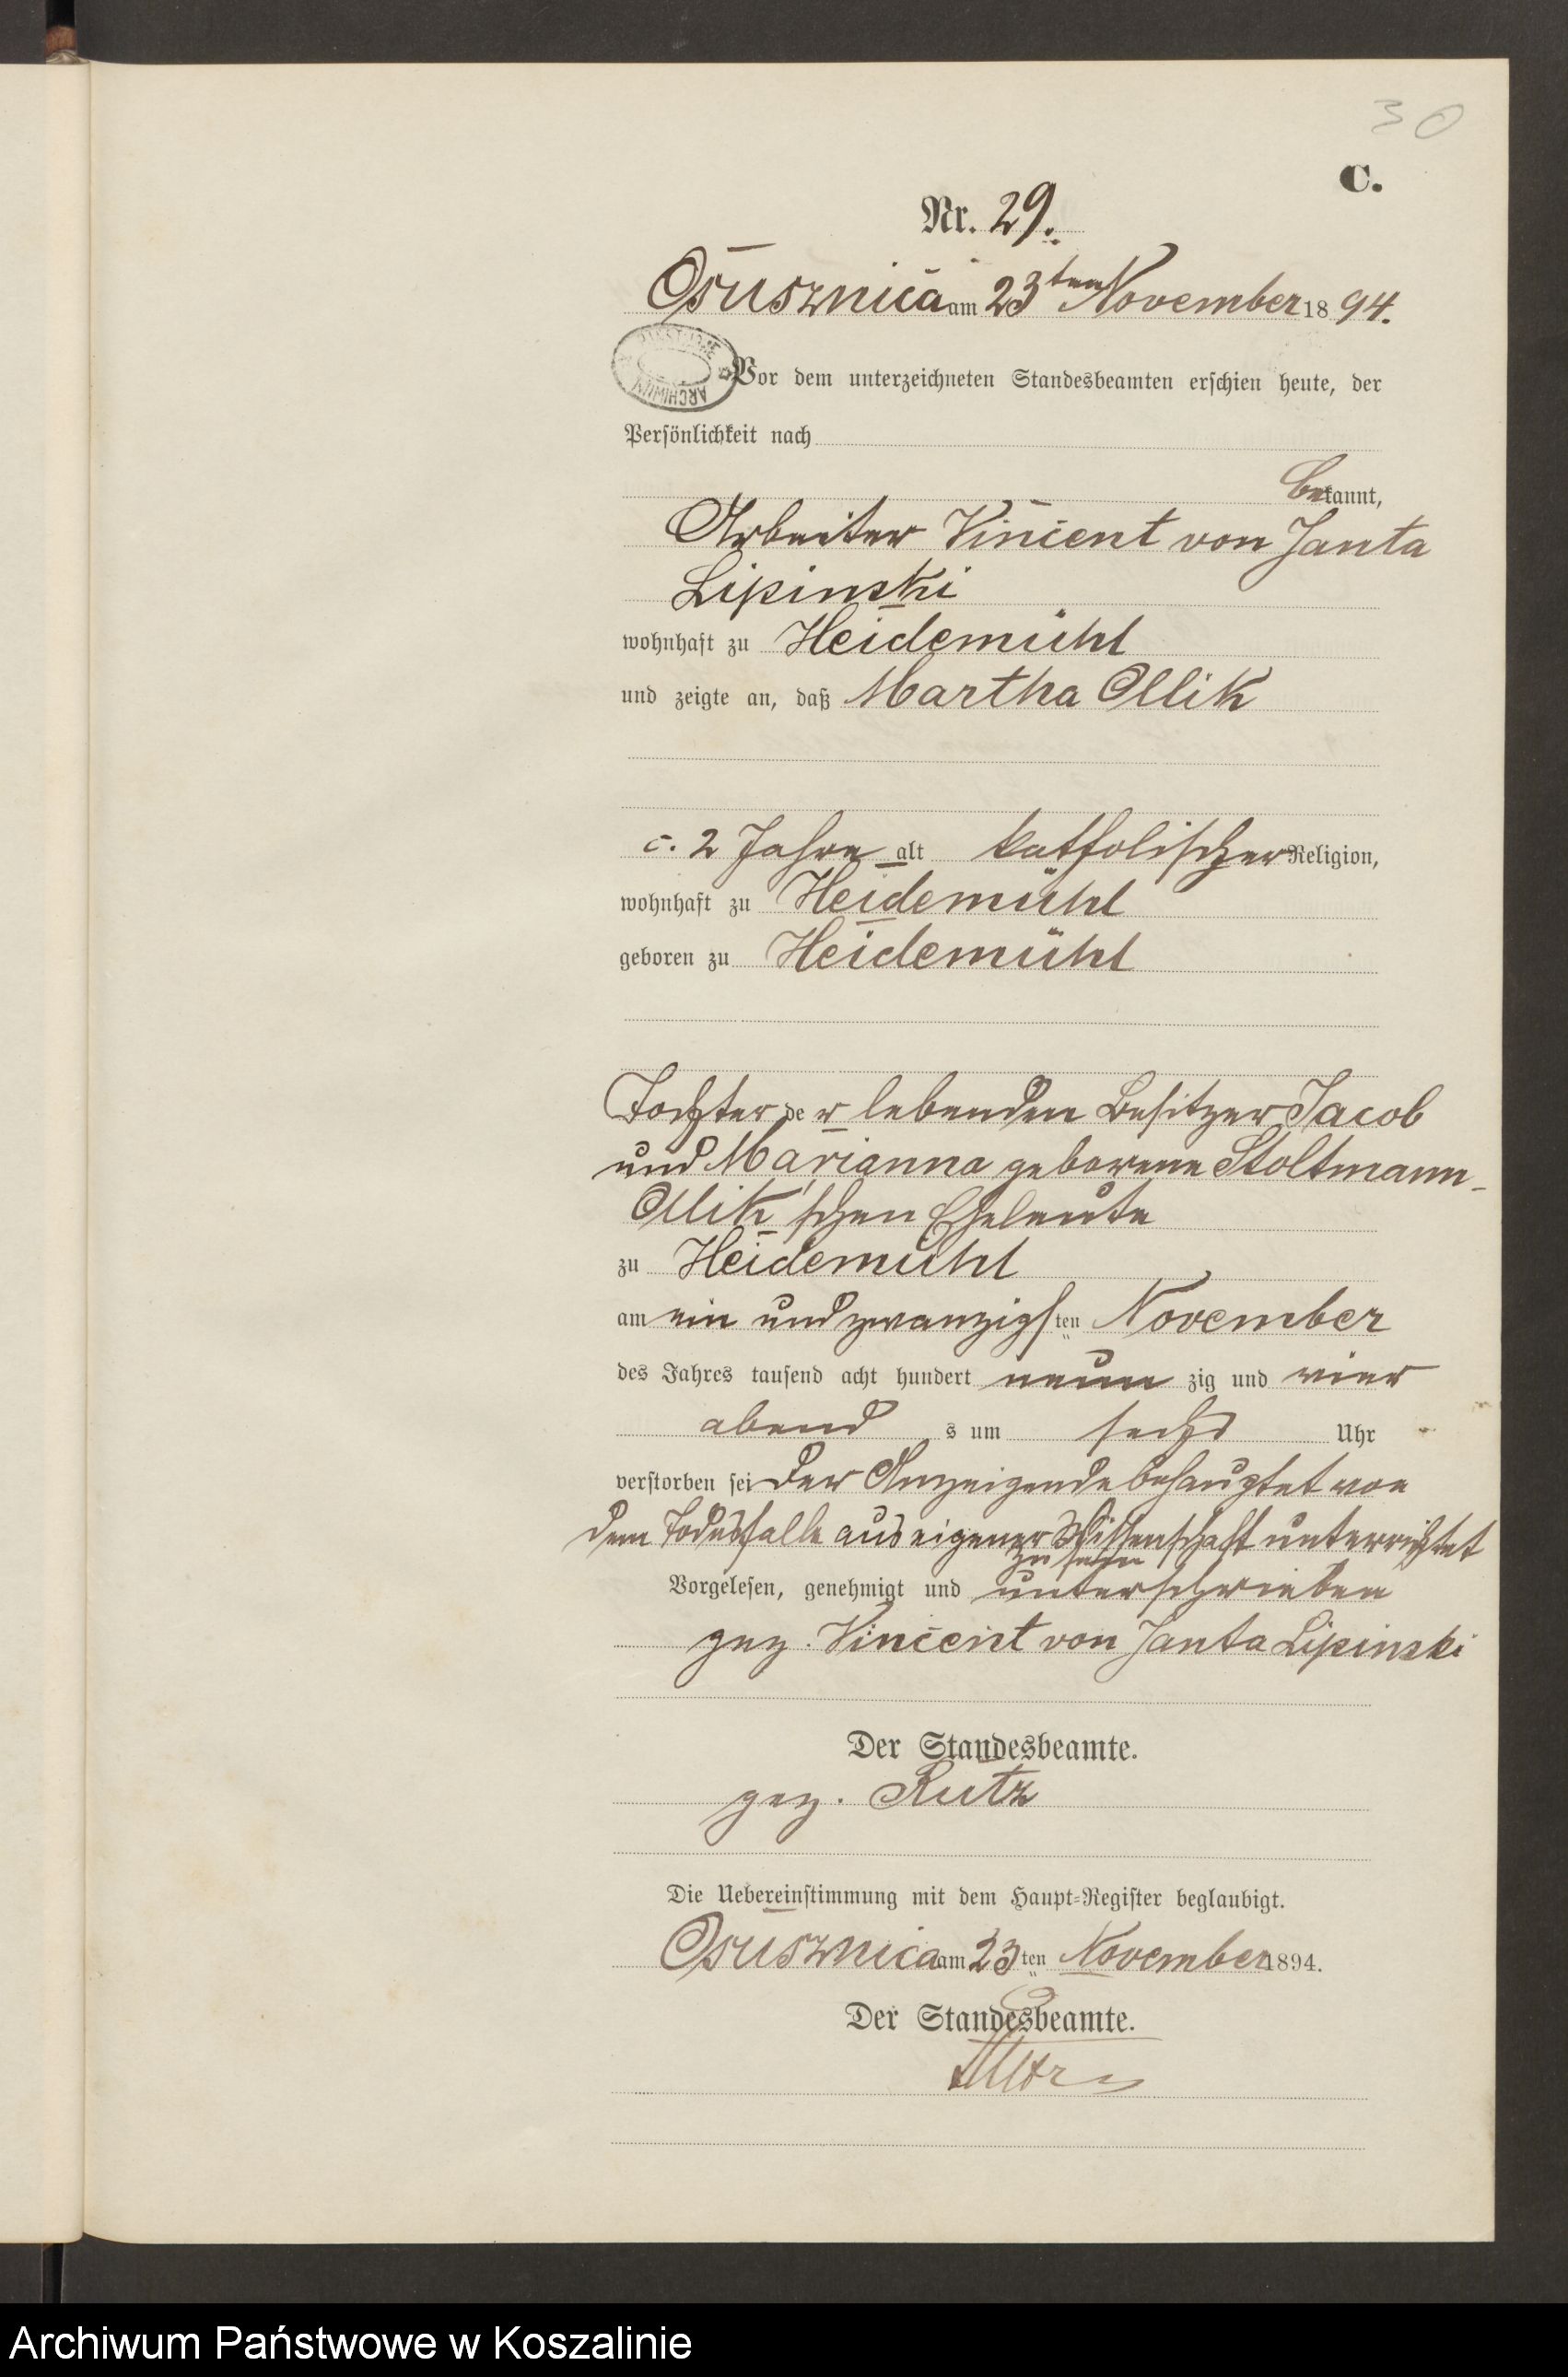 30
C.
Nr. 29.
Osusznica am 23ten November 18 94.
Vor dem unterzeichneten Standesbeamten erschien heute, der
Persönlichkeit nach
bekannt,
Arbeiter Vincent von Janta
Lipinski
wohnhaft zu Heidemühl
und zeigte an, daß Martha Ollik
c. 2 Jahre alt katholischer Religion,
wohnhaft zu Heidemühl
geboren zu Heidemühl
Tochter der lebenden Besitzer Jacob
und Marianna geborene Stoltmann-
Ollik'schen Eheleute
zu Heidemühl
am ein und zwanzigsten November
des Jahres tausend acht hundert neun zig und vier
abend s um sechs Uhr
verstorben sei Der Anzeigende behauptet von
dem Todesfalle aus eigener Wissenschaft unterrichtet
zu sein
Vorgelesen, genehmigt und unterschrieben
gez. Vincent von Janta Lipinski
Der Standesbeamte.
gez. Rutz
Die Uebereinstimmung mit dem Haupt-Register beglaubigt.
Osusznica am 23ten November 1894.
Der Standesbeamte.
Archiwum Państwowe w Koszalinie